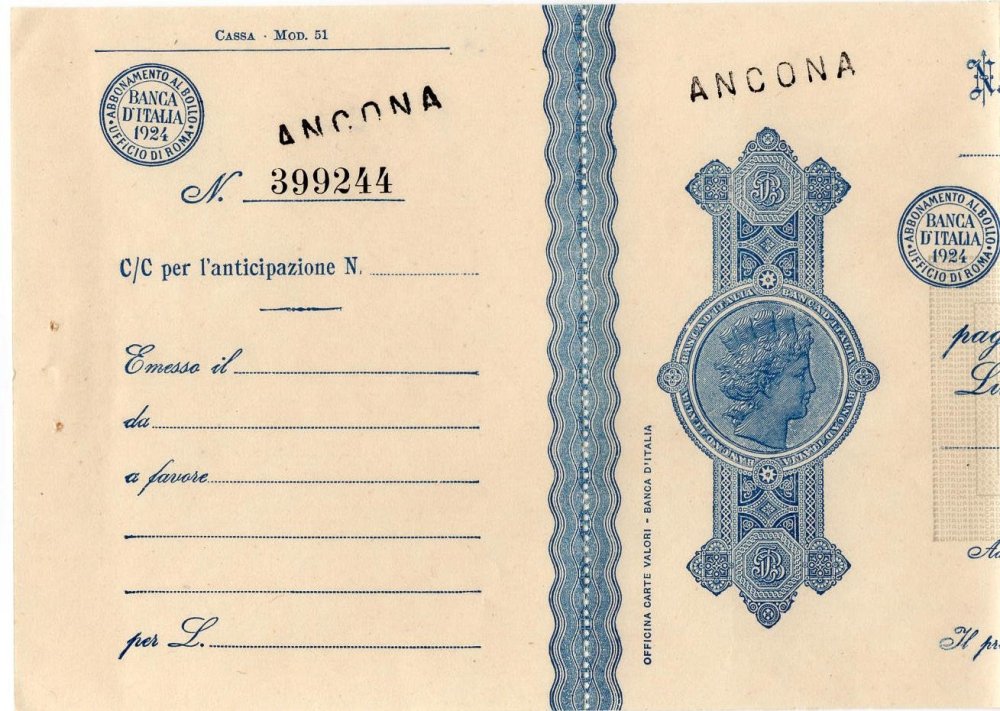 Cassa - Mod. 51
ABBONAMENTO AL BOLLO
BANCA
D'ITALIA
1924
UFFICIO DI ROMA
ANCONA
N. 399244
C/C per l'anticipazione N.
Emesso il
da
a favore
per L.
ANCONA
BANCA D'ITALIA
BANCA D'ITALIA
BANCA D'ITALIA
BANCA D'ITALIA
OFFICINA CARTE VALORI - BANCA D'ITALIA
N.
ABBONAMENTO AL BOLLO
BANCA
D'ITALIA
1924
UFFICIO DI ROMA
pag
Il pr